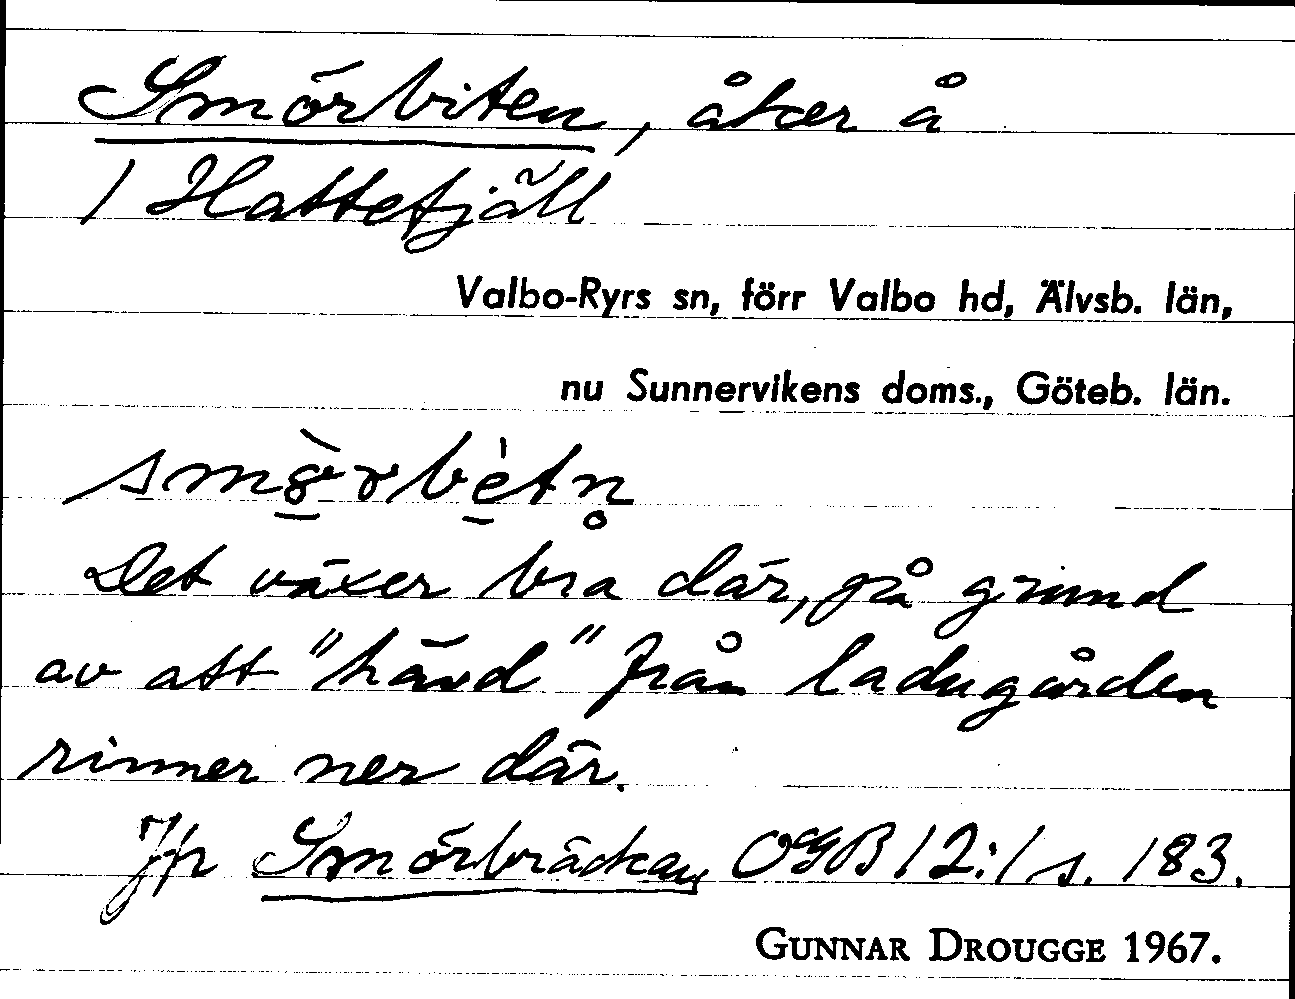 Smörbiten, åker å
1 Hattefjäll
Valbo-Ryrs sn, förr Valbo hd, Älvsb. län,
nu Sunnervikens doms., Göteb. län.
Det växer bra där, på grund
av att "hävd" från ladugården
rinner ner där.
Jfr Smörbräckan, OGB 12:1 s. 183.
GUNNAR DROUGGE 1967.